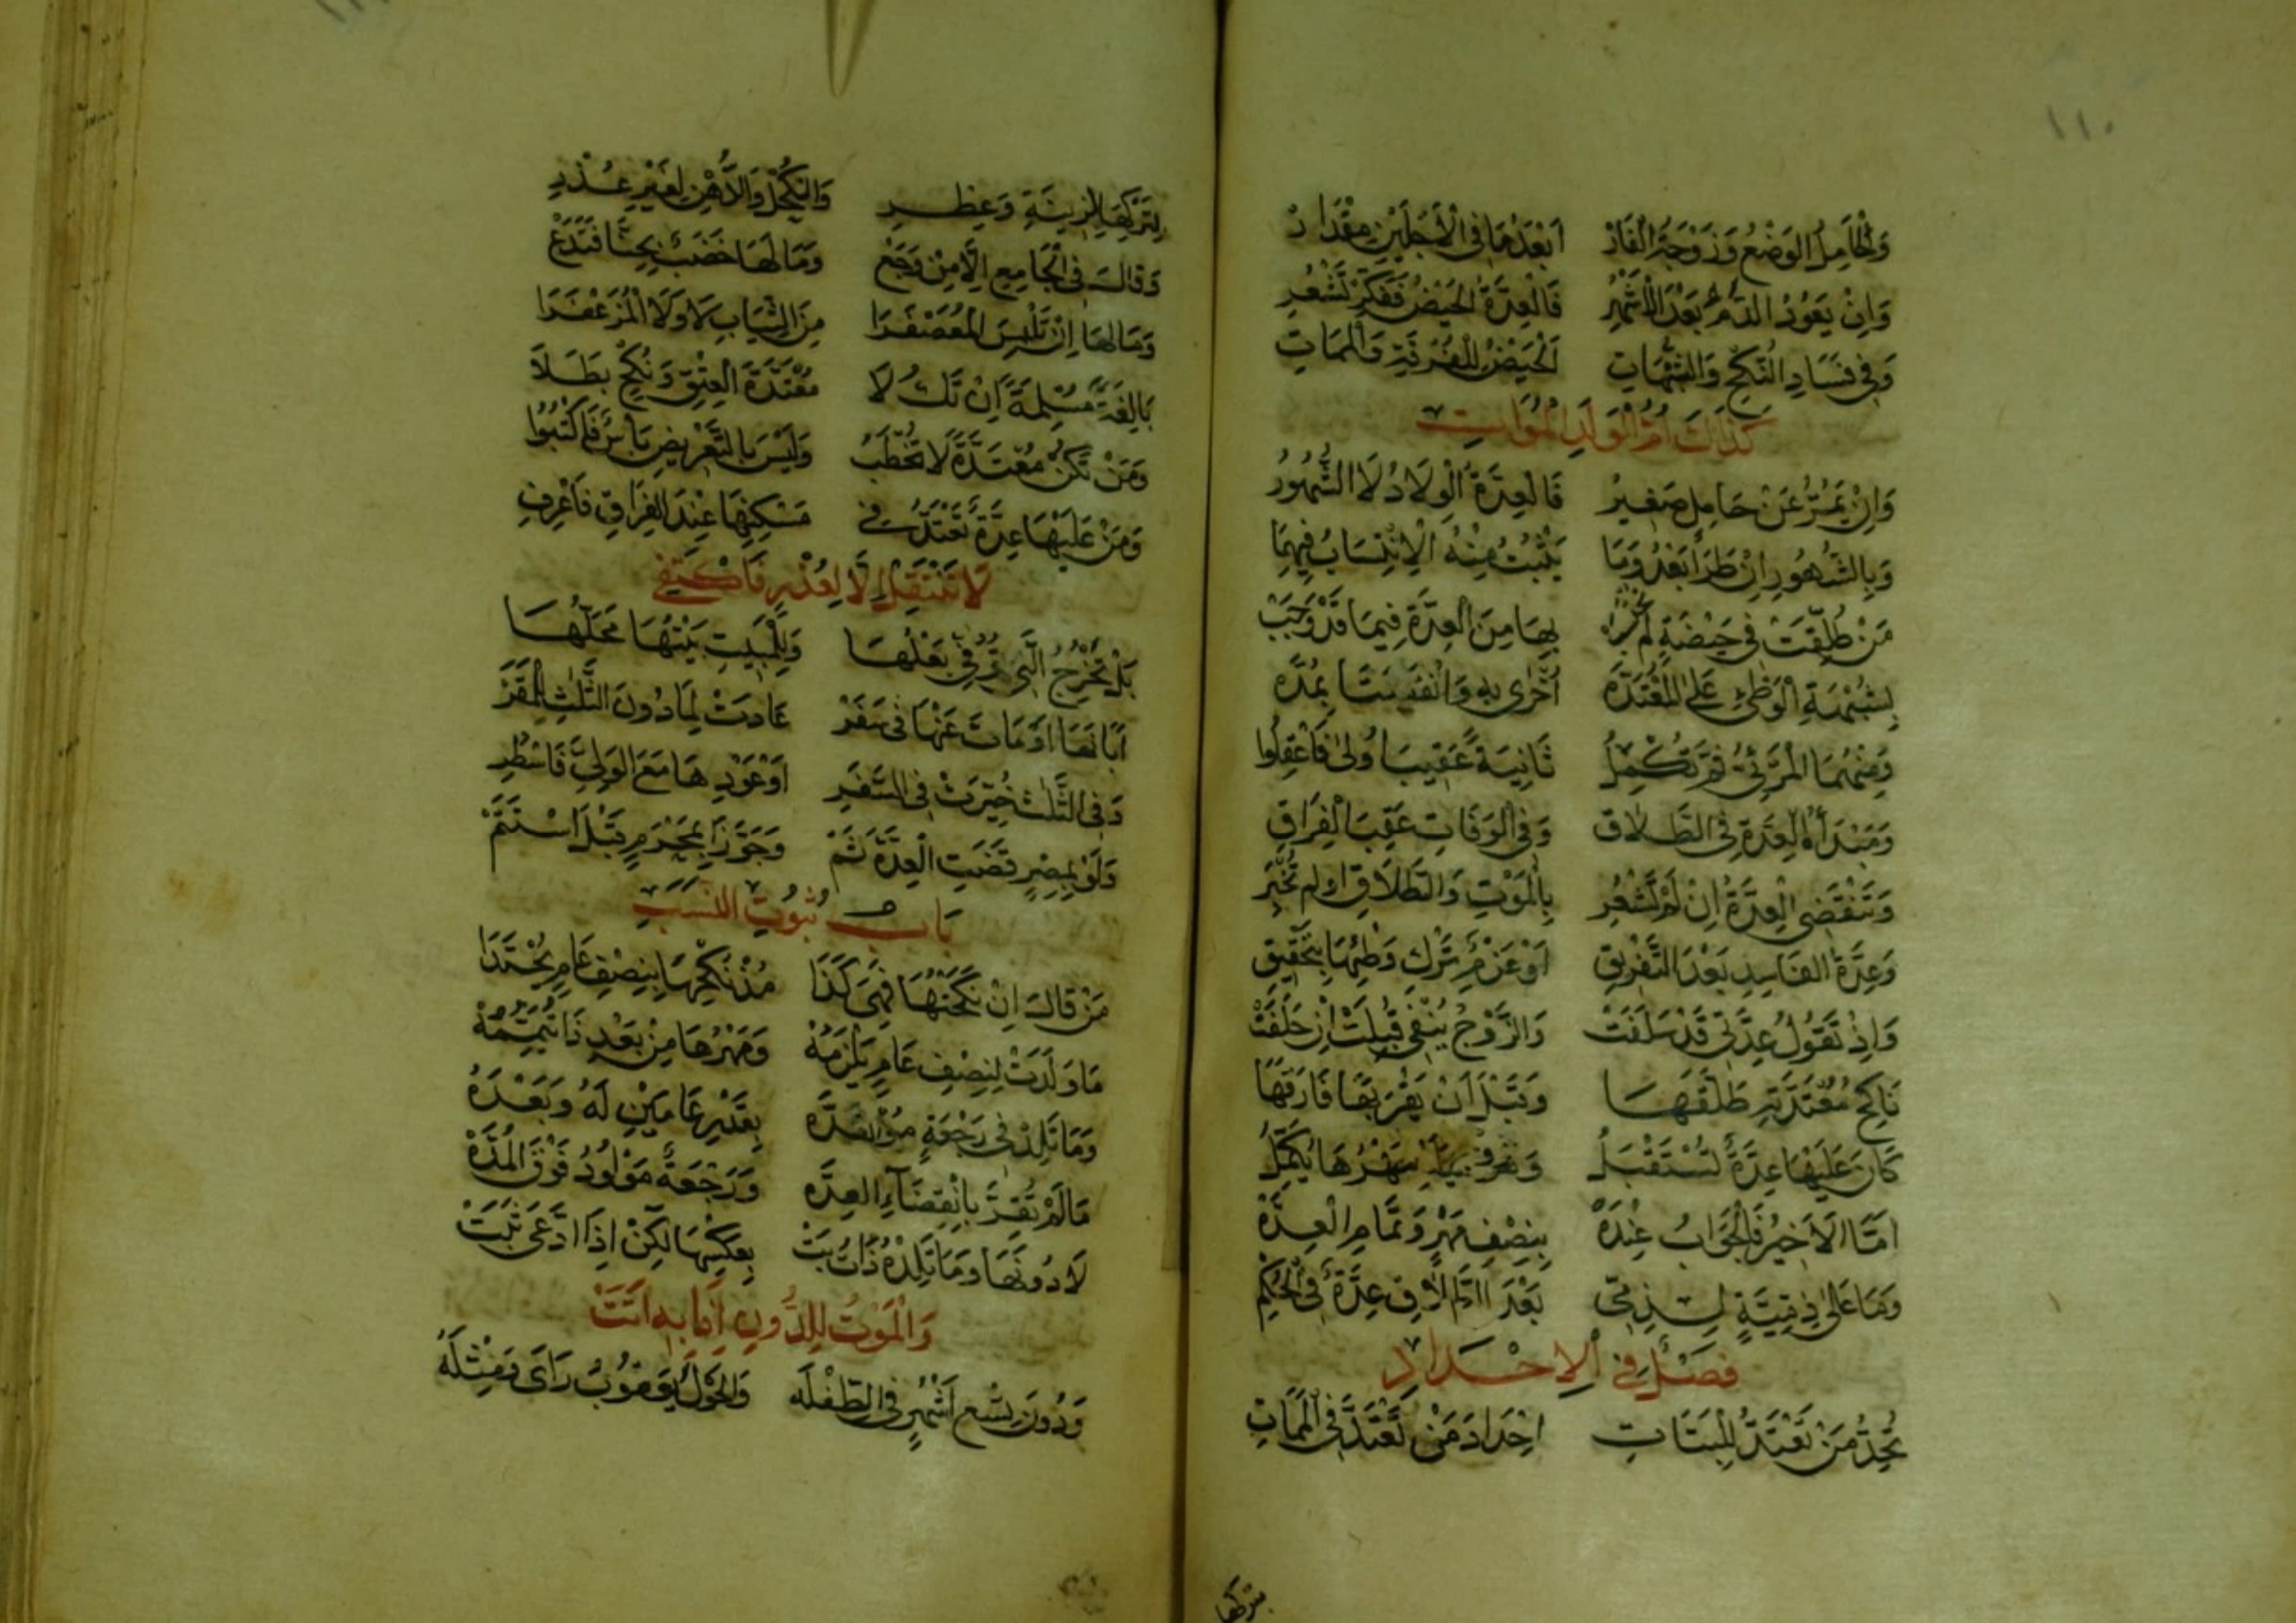 ١١٠
وَالْحَامِلُ الوَضْعُ وَزَوْجَةُ الْفَارْ اَبْعَدُهَا فِى الْاَجَلَيْنِ مِقْدَارْ
وَاِنْ يَعُودُ الدَّمُ بَعْدَ الْاَشْهُرِ فَالْعِدَّةُ الحَيْضُ فَفَكِّرْ تَشْعُرِ
وَفِى فَسَادِ النُّكْحِ وَالشُّبُهَاتِ اَلْحَيْضُ لِلْفُرْقَةِ وَالْمَمَاتِ
كَذَاكَ اُمُّ الْوَلَدِ الْمُوَاتِ
وَاِنْ يَمُتْ عَنْ حَامِلٍ صَغِيرُ فَالْعِدَّةُ الْوِلَادُ لَا الشُّهُورُ
وَبِالشُّهُورِ اِنْ طَرَأَ بَعْدُ وَمَا يَثْبُتُ مِنْهُ الْاِنْتِسَابُ فِيهِمَا
مَنْ طُلِّقَتْ فِى حَيْضَةٍ لم بِهَا مِنَ الْعِدَّةِ فِيمَا قَدْ وَجَبْ
بِشُبْهَةِ الْوَطْىِ عَلَى الْمُعْتَدَّةْ اُخْرٰى بِهِ وَانْقَضَتَا بِمُدَّهْ
وَمِنْهُمَا الْمَرْئِىُّ ثُمَّ تُكْمِلُ ثَانِيَةً عَقِيبَ اُولٰى فَاعْقِلُوا
وَمَبْدَأُ الْعِدَّةِ فِى الطَّلَاقِ وَفِى الْوَفَاتِ عَقِبَ الْفِرَاقِ
وَتَنْقَضِى الْعِدَّةُ اِنْ لَمْ تَشْعُرِ بِالْمَوْتِ وَالطَّلَاقِ اولم تُخْبَرِ
وَعِدَّةُ الفَاسِدِ بَعْدَ التَّفْرِيقِ اَوْ عَزْمِ تَرْكِ وَطْئِهَا بِتَحْقِيقِ
وَاِذْ تَقُولُ عِدَّتِى قَدْ سَلَفَتْ وَالزَّوْجُ يَنْفِى قُبِلَتْ اِنْ حَلَفَتْ
نَاكِحُ مُعْتَدَّتِهِ طَلَّقَهَا وَقَبْلَ اَنْ يَقْرَبَهَا فَارَقَهَا
كَانَ عَلَيْهَا عِدَّةٌ تُسْتَقْبَلُ مَهْرُهَا يُكَمَّلُ
اَمَّا الْاَخِيرُ فَالْجَوَابُ عِنْدَهْ بِنِصْفِ مَهْرٍ وَتَمَامِ الْعِدَّهْ
وَمَا عَلٰى ذِمِّيَّةٍ لِذِمِّى بَعْدَ الطَّلَاقِ عِدَّةٌ فِى الْحُكْمِ
فَصْلٌ فِى الْاِحْدَادِ
تُحِدُّ مَنْ تَعْتَدُّ لِلْبَتَاتِ اِحْدَادَ مَنْ تَعْتَدُّ فِى الْمَمَاتِ
بتركها
لِتَرْكِهَا لِزِينَةٍ وَعِطْرِ وَالْكُحْلِ وَالدُّهْنِ لِغَيْرِ عُذْرِ
وَقَالَ فِى الْجَامِعِ اِلَّا مِنْ وَجَعْ وَمَا لَهَا خَضْبٌ بِحِنَّا فَتَدَعْ
وَمَا لَهَا اِنْ تَلْبَسِ الْمُعَصْفَرَا مِنَ الثِّيَابِ لَا وَلَا الْمُزَعْفَرَا
بَالِغَةً مُسْلِمَةً اِنْ تَكُ لَا مُعْتَدَّةَ الْعِتْقِ وَنُكْحٍ بَطَلَا
وَمَنْ تَكُنْ مُعْتَدَّةً لَا تُخْطَبُ وَلَيْسَ بِالتَّعْرِيضِ بَاسٌ فَاكْتُبُوا
وَمَنْ عَلَيْهَا عِدَّةٌ تَعْتَدُّ فِى مَسْكَنِهَا عِنْدَ الفِرَاقِ فَاعْرِفِ
لَا تَنْتَقِلْ اِلَّا لِعُذْرٍ فَاكْتَفِى
بَلْ تَخْرُجُ الَّتِى تُوُفِّىَ بَعْلُهَا وَلِلْمَبِيتِ بَيْتُهَا مَحَلُّهَا
اَبَانَهَا اَوْ مَاتَ عَنْهَا فِى سَفَرْ عَادَتْ لِمَا دُونَ الثَّلَثِ لِلْمَقَرّْ
وَفِى الثَّلٰثِ خُيِّرَتْ فِى السَّفَرِ اَوْ عَوْدِهَا مَعَ الوَلِىِّ فَاسْطُرِ
وَلَوْ بِمِصْرٍ قَضَتِ الْعِدَّةَ ثَمّْ وَجَوَّزَا بِمَحْرَمٍ قَبْلَ اسْتَتَمّْ
بَابُ ثُبُوتِ النَّسَبِ
مَنْ قَالَ اِنْ نَكَحْتُهَا فَهِىَ كَذَا مُذْ نُكْحِهَا بِنِصْفِ عَامٍ يُحْتَذَا
مَا وَلَدَتْ لِنِصْفِ عَامٍ يَلْزَمُهْ وَمَهْرُهَا مِنْ بَعْدِ ذَا تُتَمِّمُهْ
وَمَا تَلِدْ فِى رَجْعَةٍ بِقَدْرِ عَامَيْنِ لَهُ وَبَعْدَهُ
مَا لَمْ تُقِرَّ بِانْقِضَآءِ العِدَّه وَرَجْعَةٌ مَوْلُودُ فَوْقَ الْمُدَّهْ
لَا دُونَهَا وَمَا تَلِدْهُ ذَاتُ بَتّْ بِعَكْسِهَا لٰكِنْ اِذَا ادَّعَى ثَبَتْ
وَالْمَوْتُ لِلدُّونِ اِذَا بِهِ اَتَتْ
وَدُونَ تِسْعِ اَشْهُرٍ فِى الطِّفْلَه وَالْحَوْلَ يَعْقُوبُ رَاَى وَمِثْلَهُ